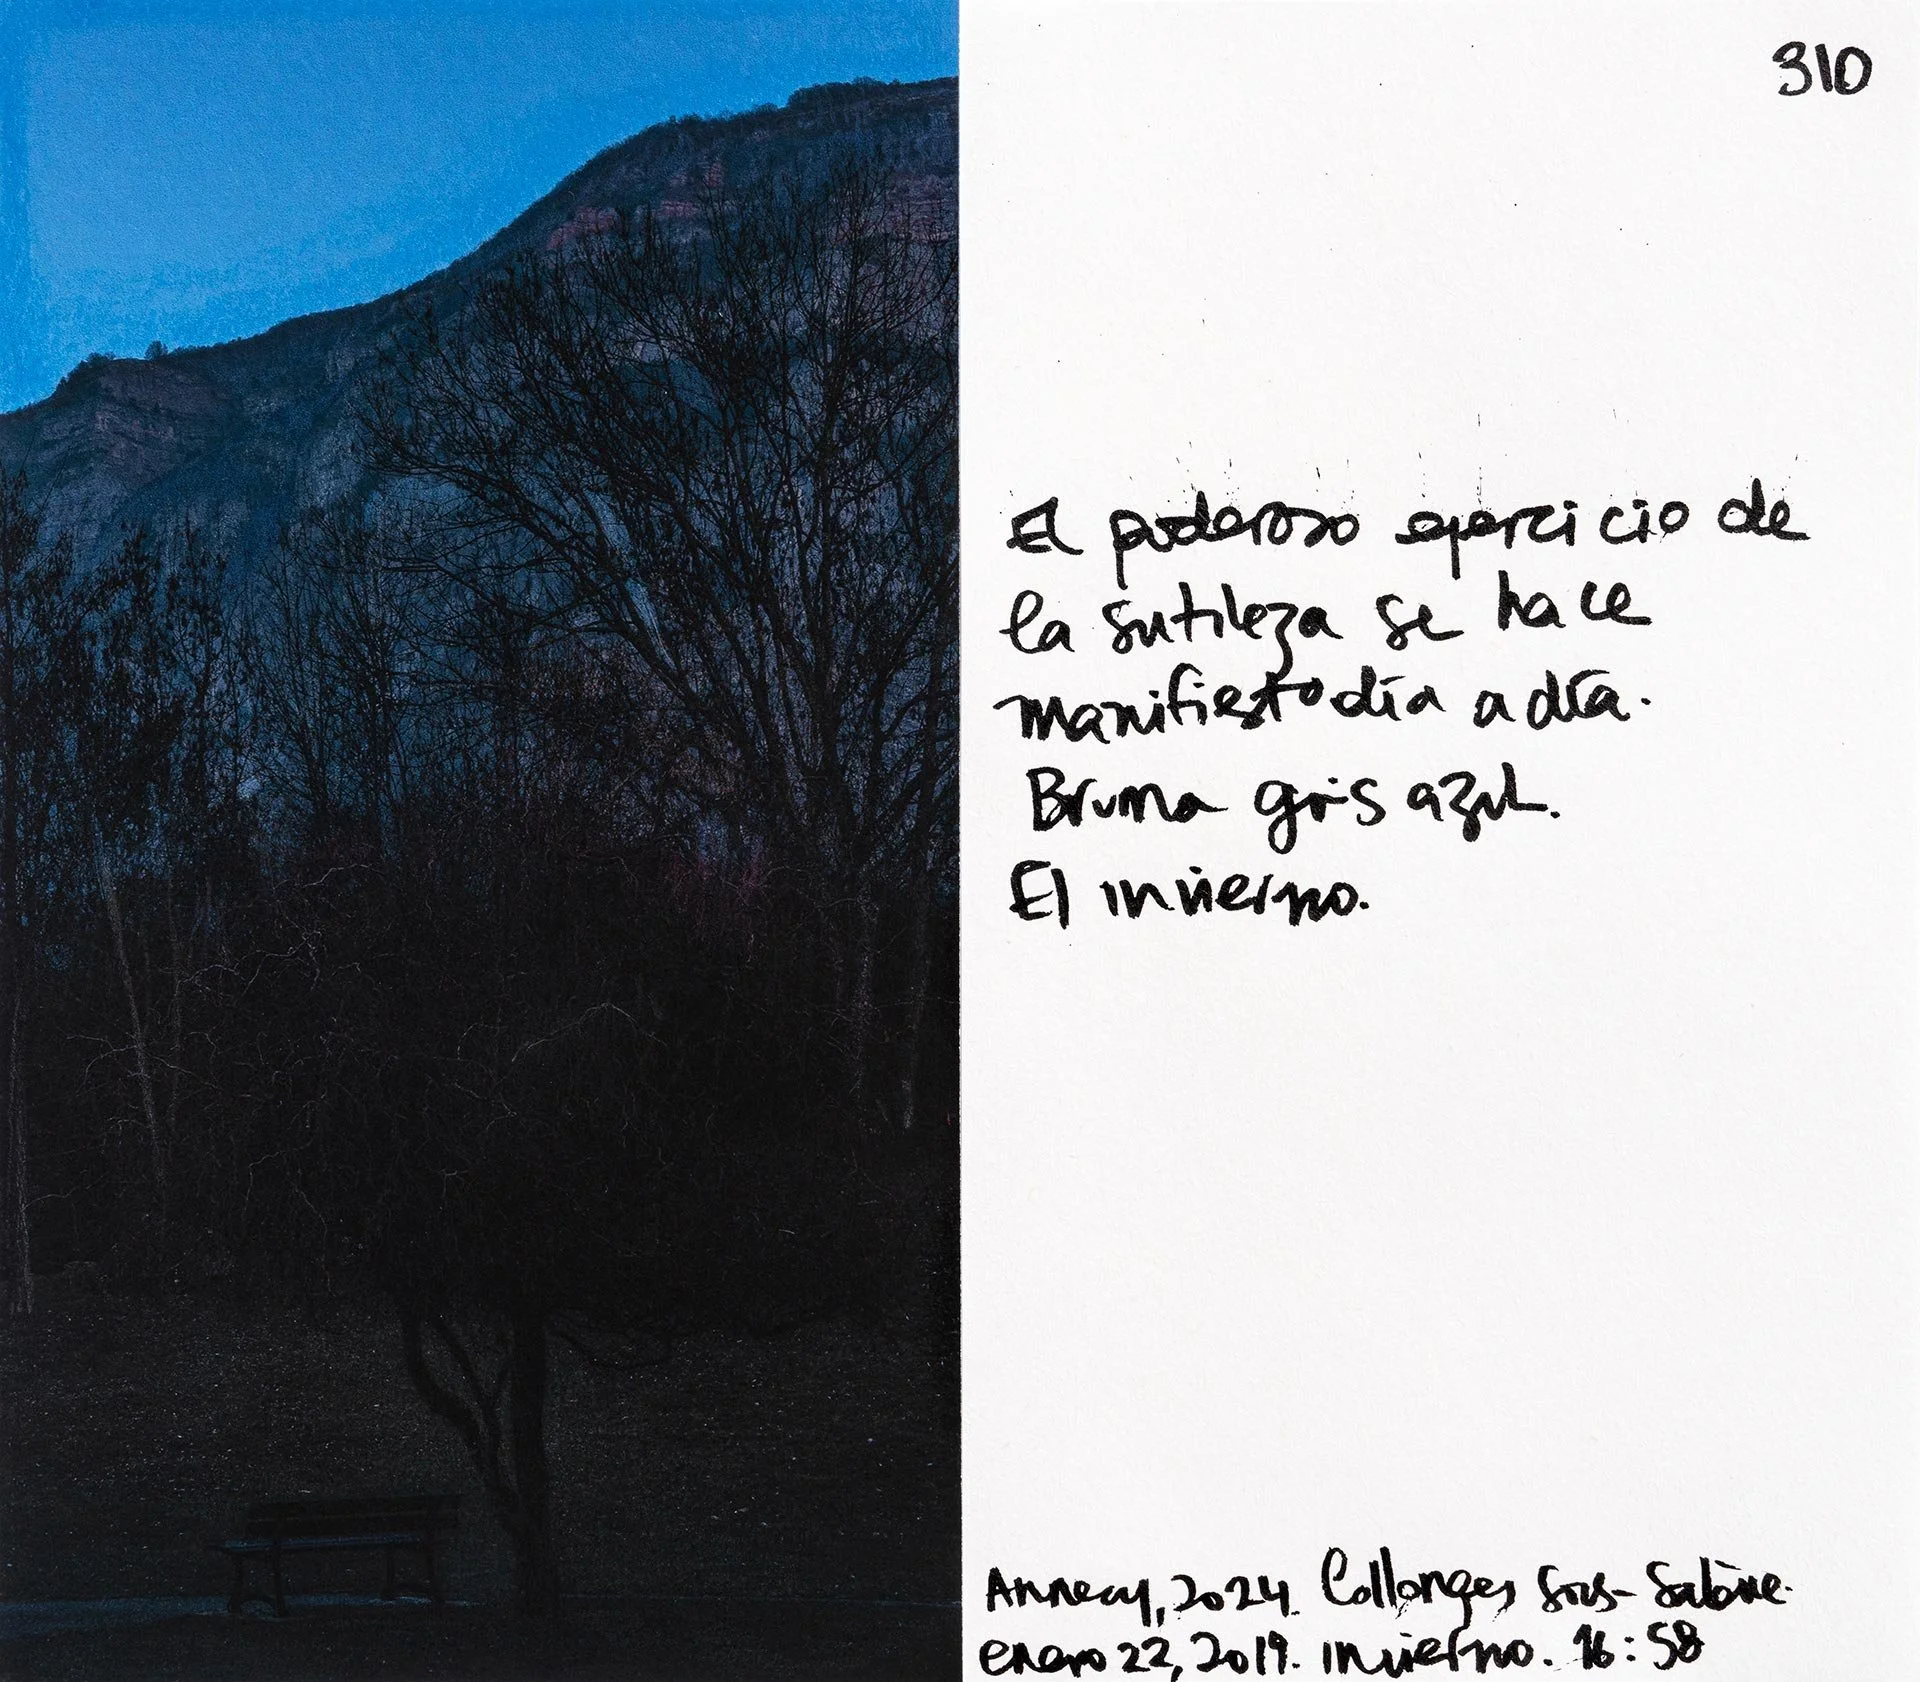 310
El poderoso ejercicio de
la sutileza se hace
manifiesto día a día.
Bruma gris azul.
El invierno.
Annecy, 2024. Collonges Sous-Salève.
enero 22, 2019. invierno. 16:58